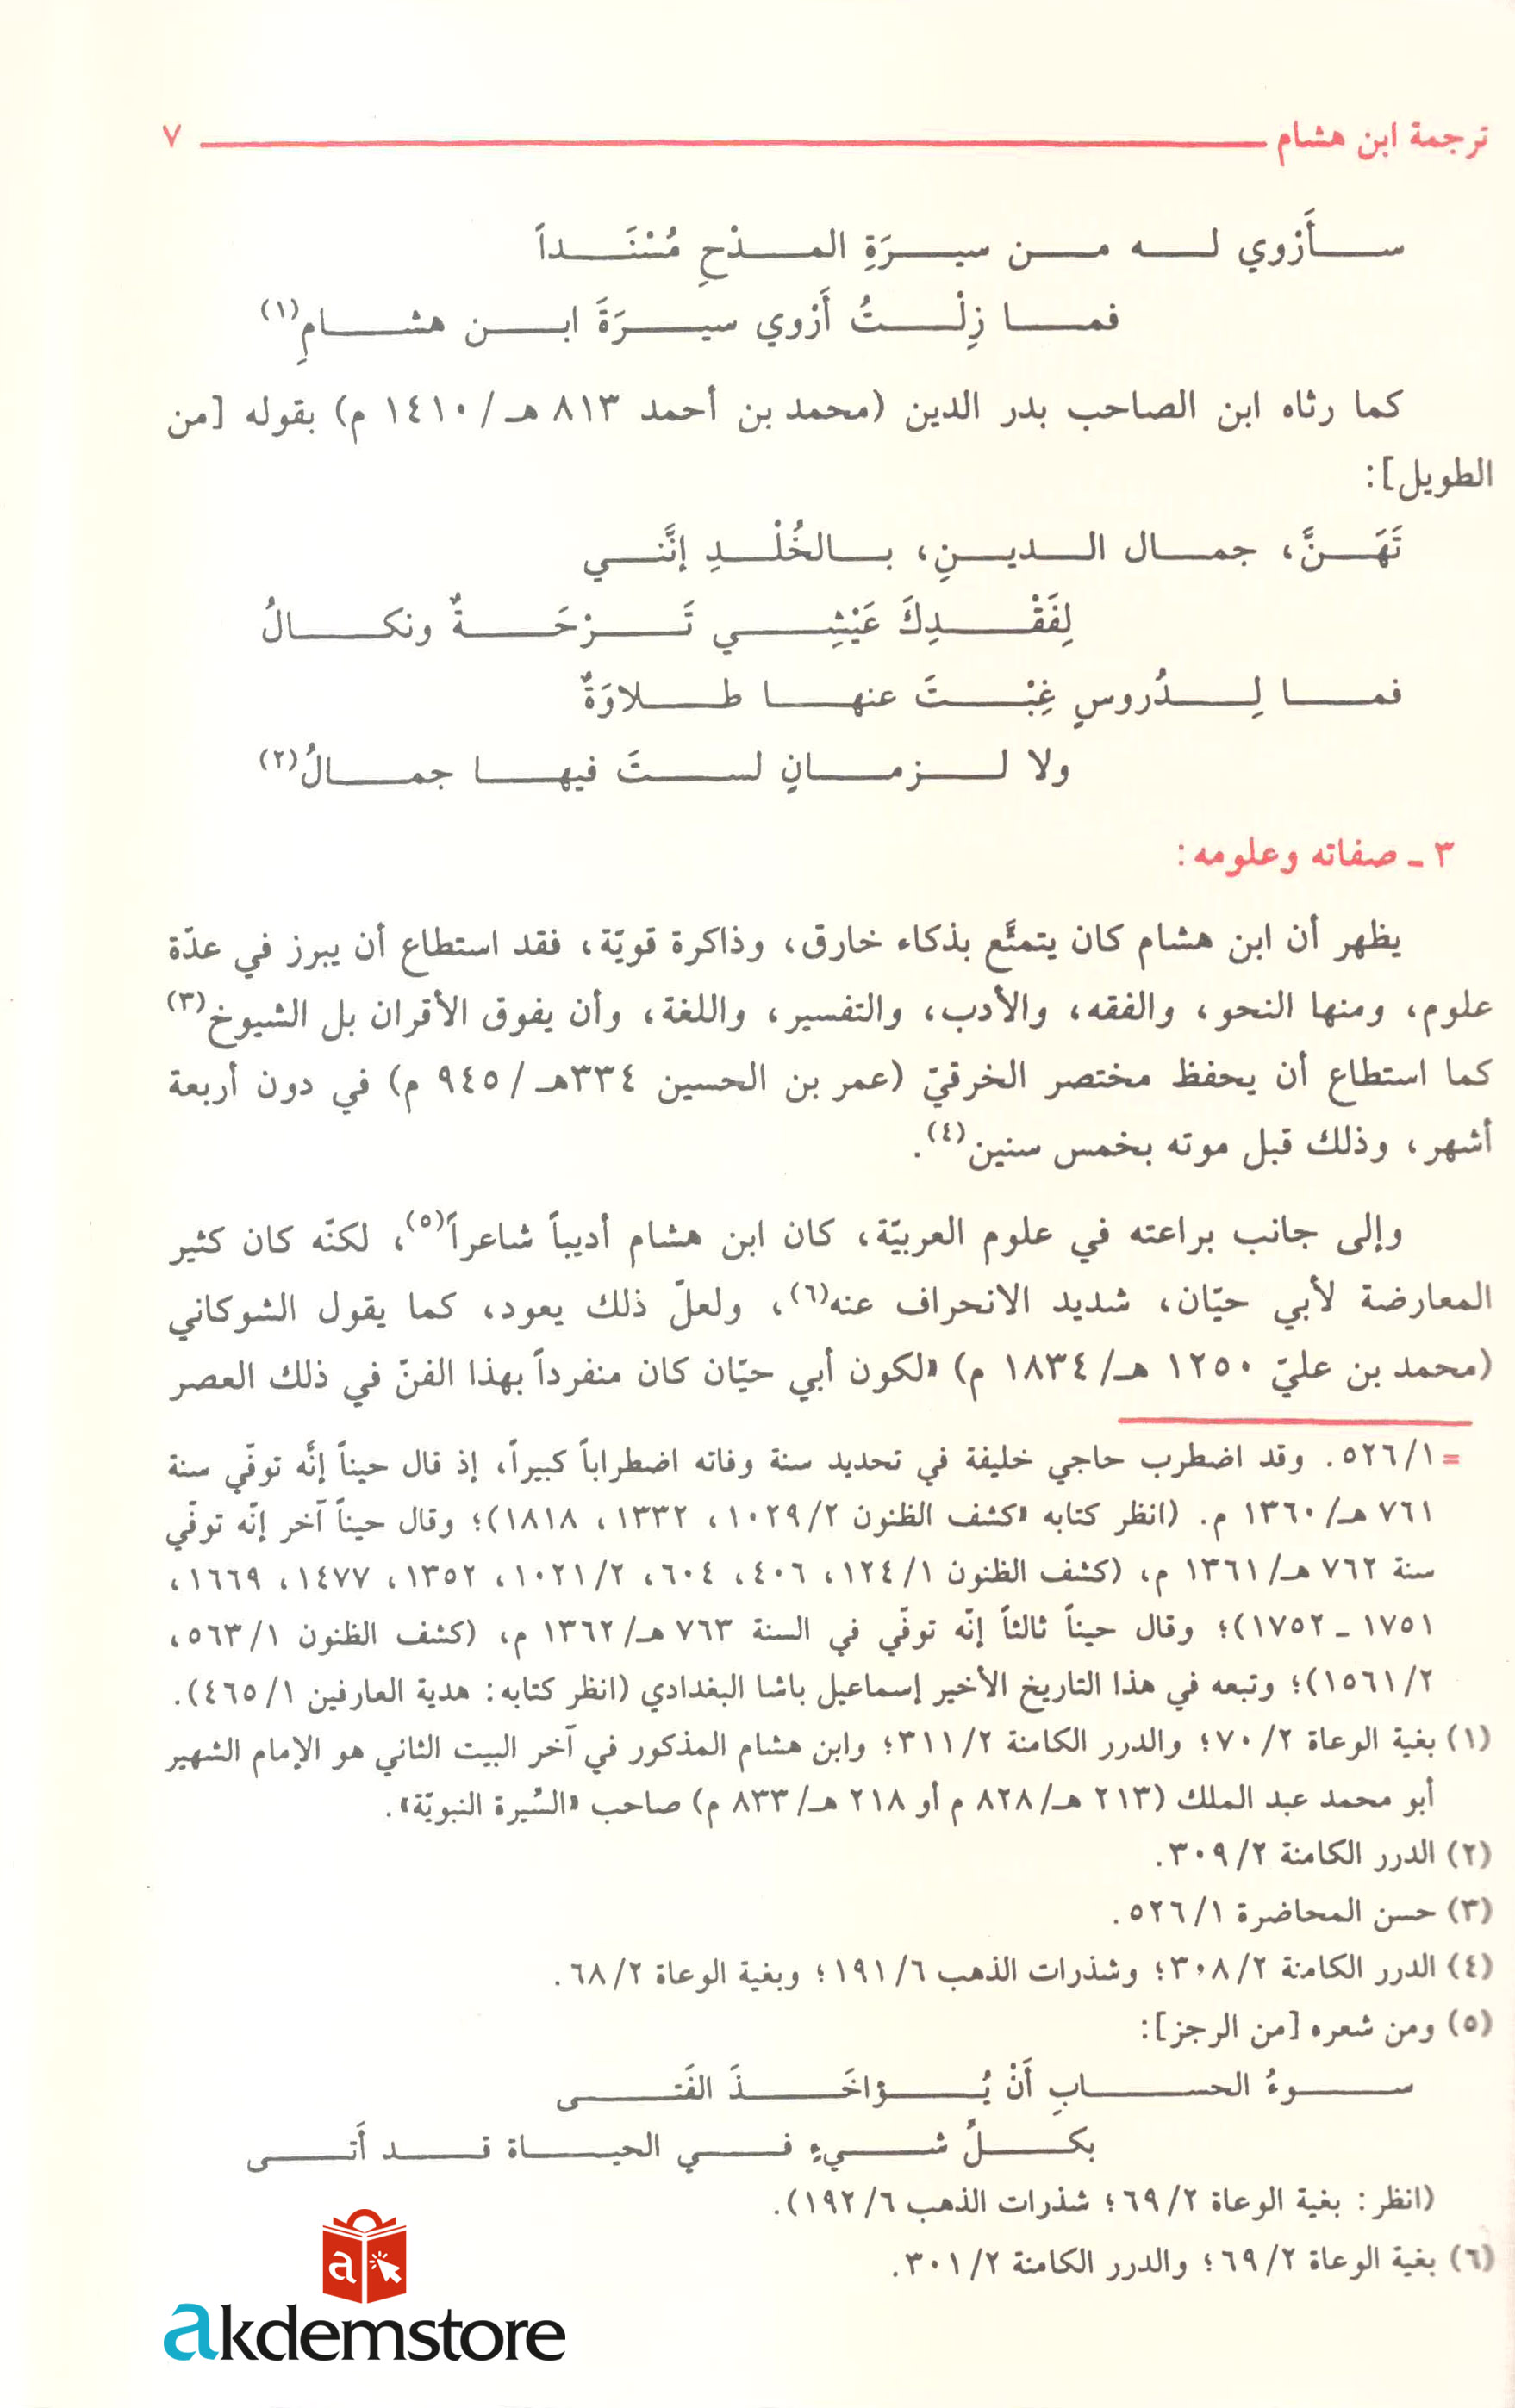 ترجمة ابن هشام ٧
سأَرْوي له من سيرَةِ المدْحِ مُسْنَداً
فما زِلْتُ أَرْوي سيرَةَ ابن هشامِ(١)
كما رثاه ابن الصاحب بدر الدين (محمد بن أحمد ٨١٣ هـ/ ١٤١٠ م) بقوله [من
الطويل]:
تَهَنَّ، جمال الدينِ، بالخُلْدِ إنَّني
لِفَقْدِكَ عَيْشِي تَرْحَةٌ ونكالُ
فما لِدُروسٍ غِبْتَ عنها طلاوَةٌ
ولا لزمانٍ لستَ فيها جمالُ(٢)
٣ ـ صفاته وعلومه:
يظهر أن ابن هشام كان يتمتَّع بذكاء خارق، وذاكرة قويّة، فقد استطاع أن يبرز في عدّة
علوم، ومنها النحو، والفقه، والأدب، والتفسير، واللغة، وأن يفوق الأقران بل الشيوخ(٣)
كما استطاع أن يحفظ مختصر الخرقيّ (عمر بن الحسين ٣٣٤هـ/ ٩٤٥ م) في دون أربعة
أشهر، وذلك قبل موته بخمس سنين(٤).
وإلى جانب براعته في علوم العربيّة، كان ابن هشام أديباً شاعراً(٥)، لكنّه كان كثير
المعارضة لأبي حيّان، شديد الانحراف عنه(٦)، ولعلّ ذلك يعود، كما يقول الشوكاني
(محمد بن عليّ ١٢٥٠ هـ/ ١٨٣٤ م) «لكون أبي حيّان كان منفرداً بهذا الفنّ في ذلك العصر
= ١/ ٥٢٦. وقد اضطرب حاجي خليفة في تحديد سنة وفاته اضطراباً كبيراً، إذ قال حيناً إنَّه توفّي سنة
٧٦١ هـ/ ١٣٦٠ م. (انظر كتابه «كشف الظنون ٢/ ١٠٢٩، ١٣٣٢، ١٨١٨)؛ وقال حيناً آخر إنّه توفّي
سنة ٧٦٢ هـ/ ١٣٦١ م، (كشف الظنون ١/ ١٢٤، ٤٠٦، ٦٠٤، ٢/ ١٠٢١، ١٣٥٢، ١٤٧٧، ١٦٦٩،
١٧٥١ ـ ١٧٥٢)؛ وقال حيناً ثالثاً إنّه توفّي في السنة ٧٦٣ هـ/ ١٣٦٢ م، (كشف الظنون ١/ ٥٦٣،
٢/ ١٥٦١)؛ وتبعه في هذا التاريخ الأخير إسماعيل باشا البغدادي (انظر كتابه: هدية العارفين ١/ ٤٦٥).
(١) بغية الوعاة ٢/ ٧٠؛ والدرر الكامنة ٢/ ٣١١؛ وابن هشام المذكور في آخر البيت الثاني هو الإمام الشهير
أبو محمد عبد الملك (٢١٣ هـ/ ٨٢٨ م أو ٢١٨ هـ/ ٨٣٣ م) صاحب «السِّيرة النبويّة».
(٢) الدرر الكامنة ٢/ ٣٠٩.
(٣) حسن المحاضرة ١/ ٥٢٦.
(٤) الدرر الكامنة ٢/ ٣٠٨؛ وشذرات الذهب ٦/ ١٩١؛ وبغية الوعاة ٢/ ٦٨.
(٥) ومن شعره [من الرجز]:
سوءُ الحسابِ أَنْ يُؤاخَذَ الفَتى
بكلِّ شيءٍ في الحياة قد أَتى
(انظر: بغية الوعاة ٢/ ٦٩؛ شذرات الذهب ٦/ ١٩٢).
(٦) بغية الوعاة ٢/ ٦٩؛ والدرر الكامنة ٢/ ٣٠١.
a
akdemstore